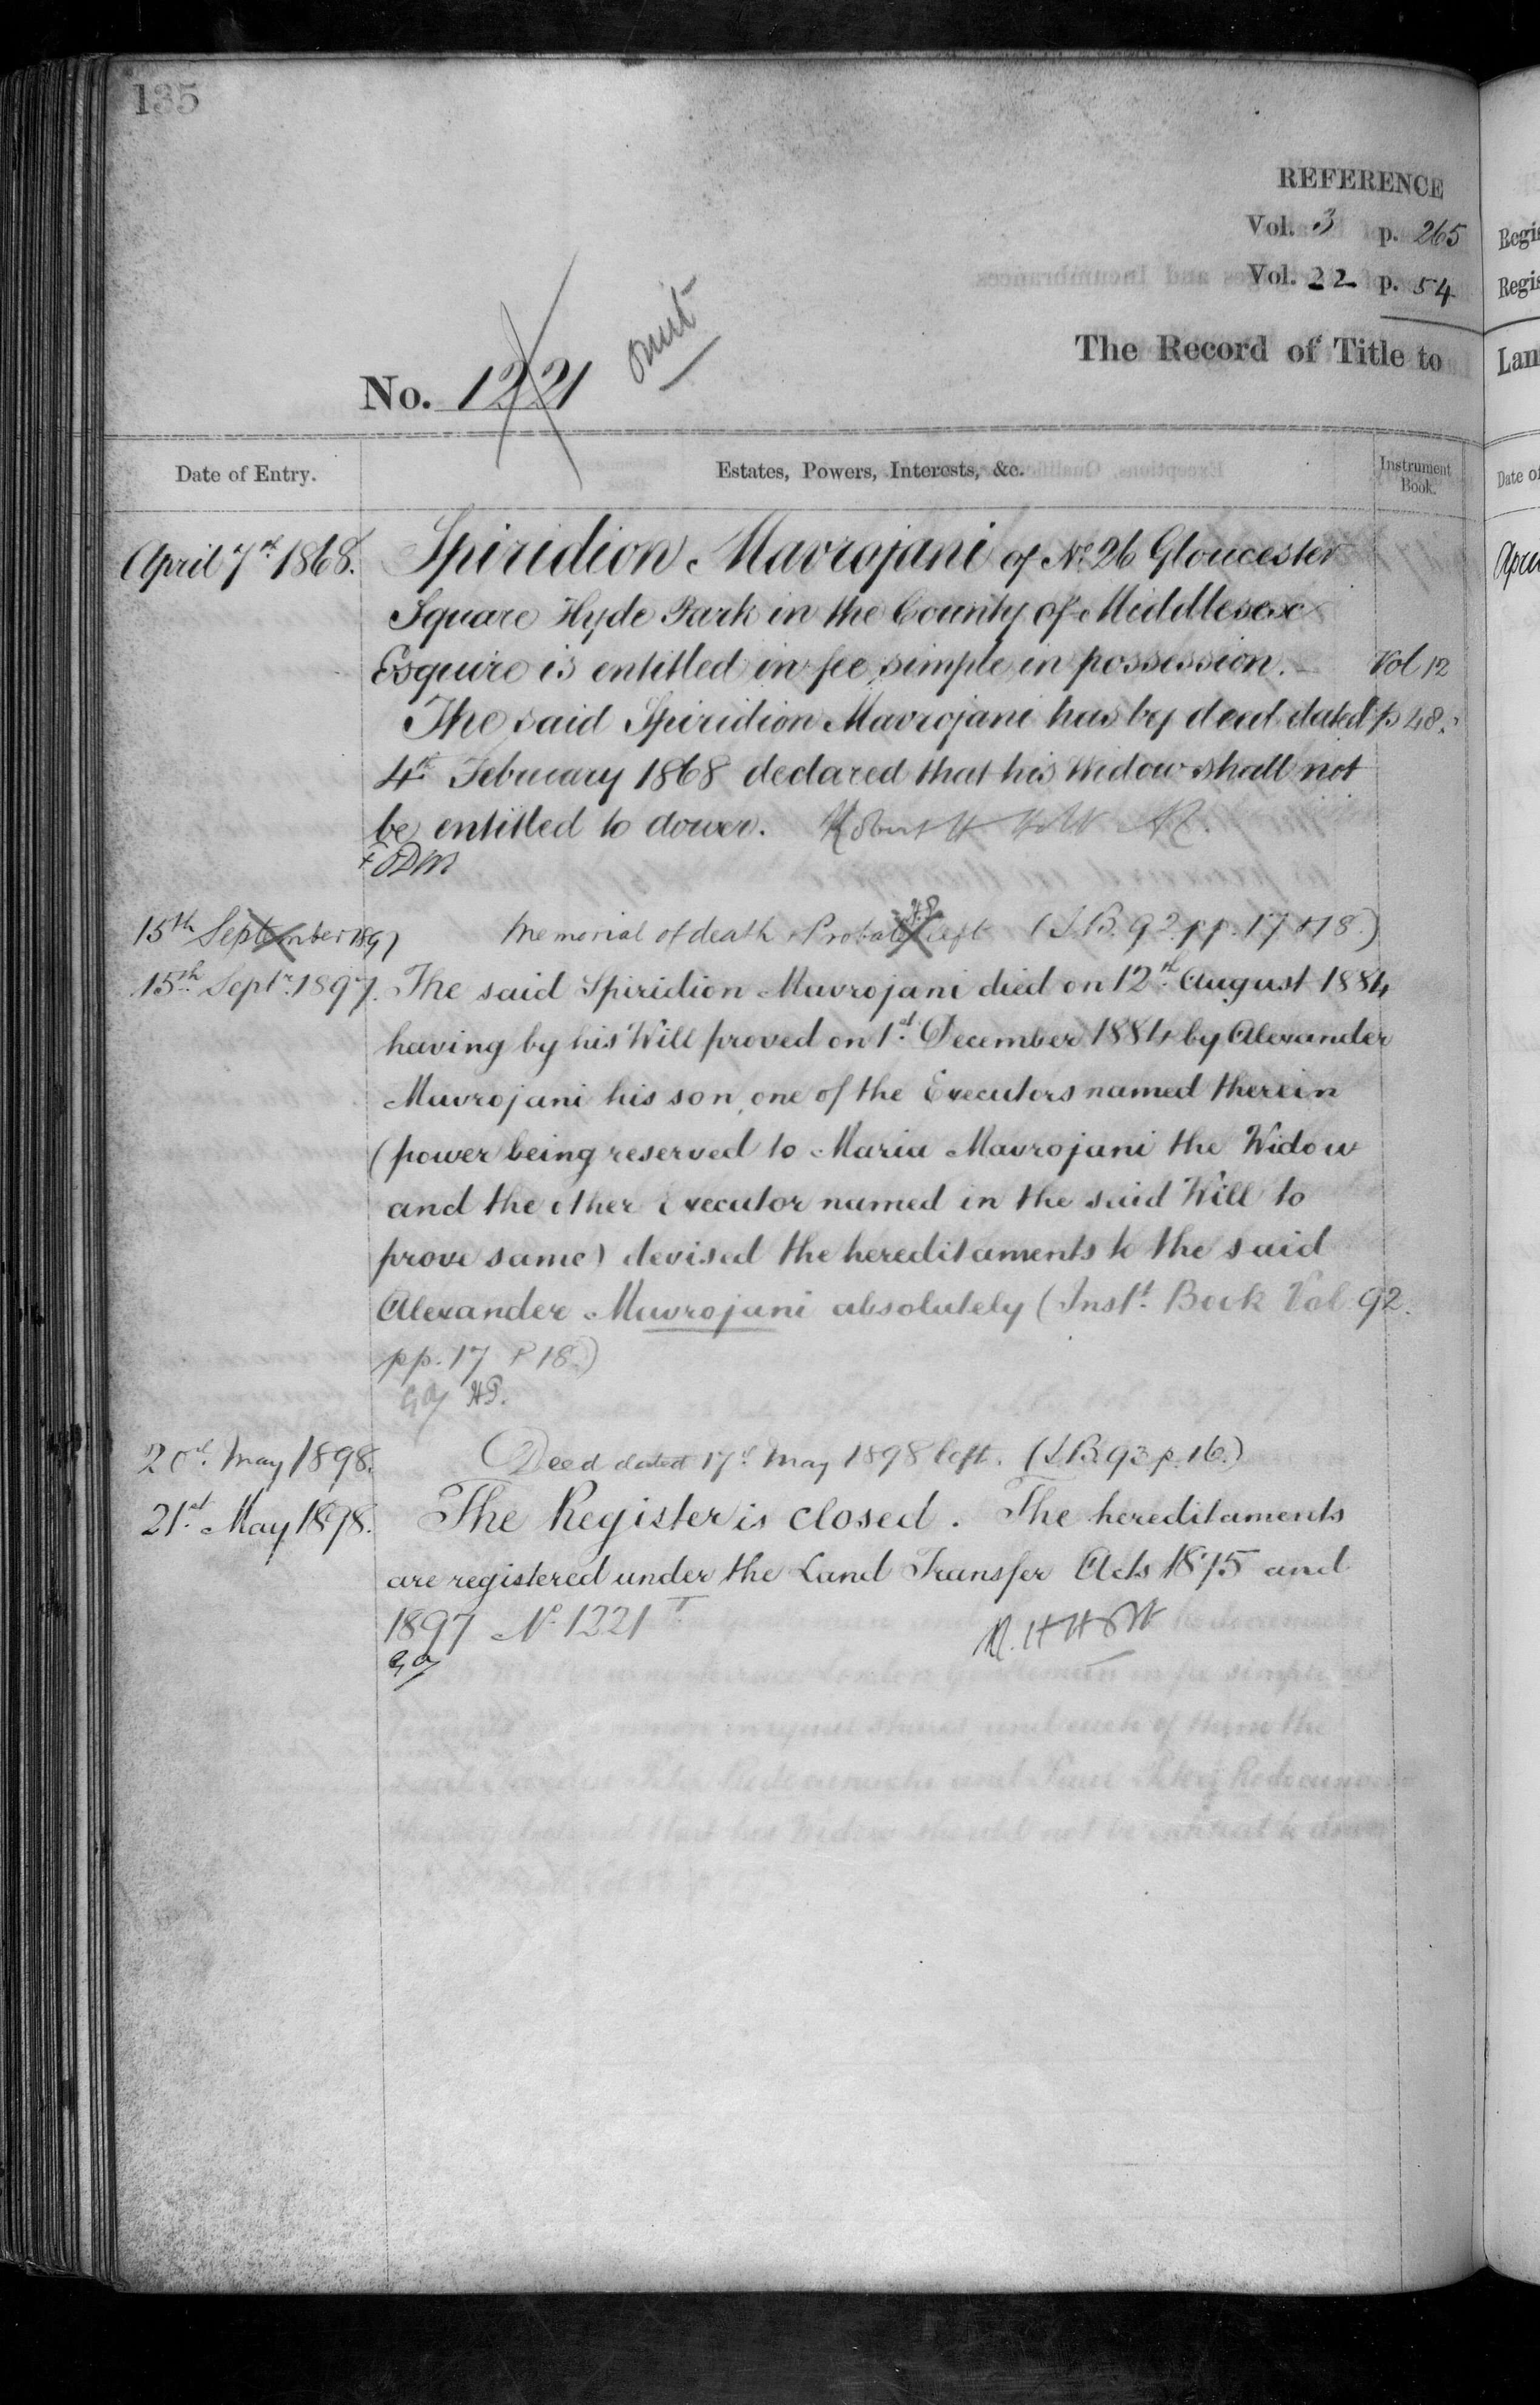 135
REFERENCE
Vol. 3 p. 265
Vol. 22 p. 54
The Record of Title to
No. 1221 omit
Date of Entry. Estates, Powers, Interests, &c. Instrument Book.
April 7th 1868. Spiridion Mavrojani of No. 26 Gloucester
Square Hyde Park in the County of Middlesex
Esquire is entitled in fee simple in possession. Vol 12
The said Spiridion Mavrojani has by deed dated p 48.
4th February 1868 declared that his Widow shall not
be entitled to dower. Robert H Holt A.R.
15th September 1897 Memorial of death & Probate left (I.B. 92 pp. 17 & 18.)
15th Septr. 1897. The said Spiridion Mavrojani died on 12th August 1884
having by his Will proved on 1st December 1884 by Alexander
Mavrojani his son, one of the Executors named therein
(power being reserved to Maria Mavrojani the Widow
and the other Executor named in the said Will to
prove same) devised the hereditaments to the said
Alexander Mavrojani absolutely (Inst. Book Vol 92.
pp. 17 & 18.)
H.P.
20th May 1898. Deed dated 17th May 1898 left. (I.B. 93 p. 16.)
21st May 1898. The Register is closed. The hereditaments
are registered under the Land Transfer Acts 1875 and
1897 No. 1221 T.
Regis
Regis
Lan
Date of
Apri